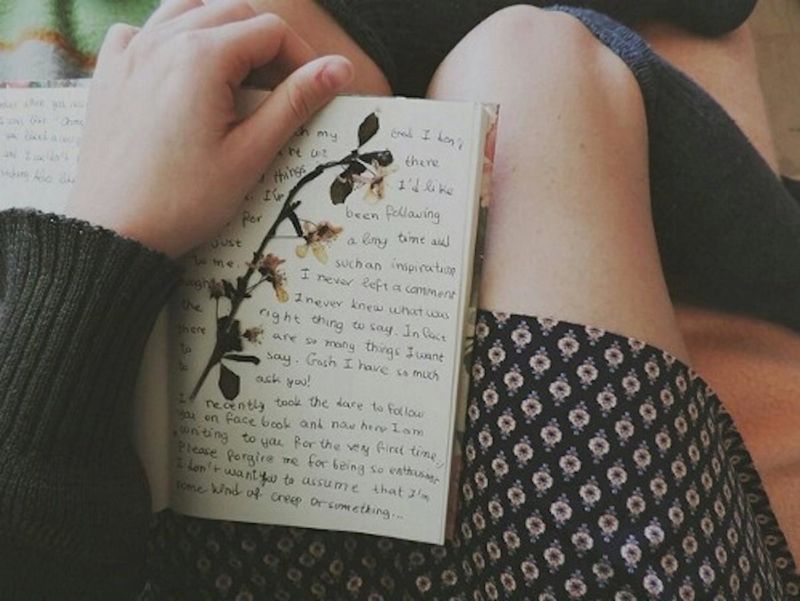 you
I can like
and I couldn't
th my God I don't
there
things I'd like
I've been following
for a long time and
just such an inspiration
to me. I never left a comment
I never knew what was
the right thing to say. In fact
there are so many things I want
to say. Gosh I have so much
to ask you!
I recently took the dare to follow
you on face book and now here I am
writing to you for the very first time,
Please forgive me for being so enthusiastic
I don't want you to assume that I'm
some kind of creep or something...